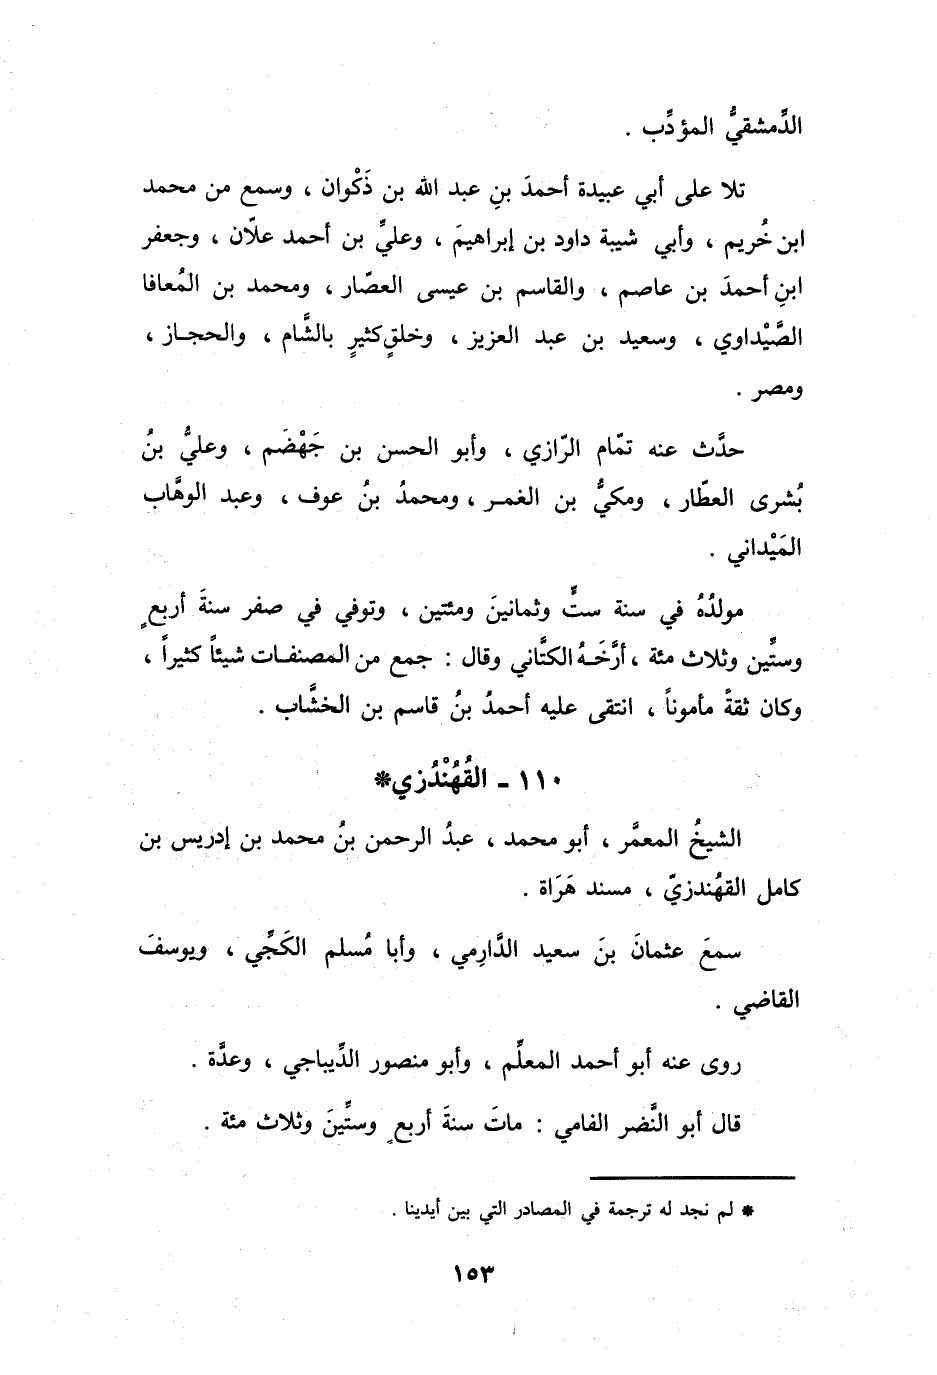 الدِّمشقيُّ المؤدِّب .
تلا على أبي عبيدة أحمدَ بنِ عبد الله بن ذَكْوان ، وسمع من محمد
ابن خُريم ، وأبي شيبة داود بن إبراهيمَ ، وعليِّ بن أحمد علاّن ، وجعفر
ابنِ أحمدَ بن عاصم ، والقاسم بن عيسى العصّار ، ومحمد بن المُعافا
الصَّيْداوي ، وسعيد بن عبد العزيز ، وخلقٍ كثيرٍ بالشَّام ، والحجـاز ،
ومصر .
حدَّث عنه تمّام الرّازي ، وأبو الحسن بن جَهْضَم ، وعليُّ بنُ
بُشرى العطّار ، ومكيُّ بن الغمـر ، ومحمدُ بنُ عوف ، وعبد الوهَّاب
المَيْداني .
مولدُهُ في سنة ستٍّ وثمانينَ ومئتين ، وتوفي في صفر سنةَ أربعٍ
وستِّين وثلاث مئة ، أرَّخَـهُ الكتَّاني وقال : جمع من المصنفـات شيئاً كثيراً ،
وكان ثقةً مأموناً ، انتقى عليه أحمدُ بنُ قاسم بن الخشَّاب .
١١٠ - القُهُنْدُزي*
الشيخُ المعمَّر ، أبو محمد ، عبدُ الرحمن بنُ محمد بن إدريس بن
كامل القهُندزيّ ، مسند هَرَاة .
سمعَ عثمانَ بنَ سعيد الدَّارِمي ، وأبا مُسلم الكَجِّي ، ويوسفَ
القاضي .
روى عنه أبو أحمد المعلِّم ، وأبو منصور الدِّيباجي ، وعدَّة .
قال أبو النَّضر الفامي : ماتَ سنةَ أربعٍ وستِّينَ وثلاث مئة .
* لم نجد له ترجمة في المصادر التي بين أيدينا .
١٥٣